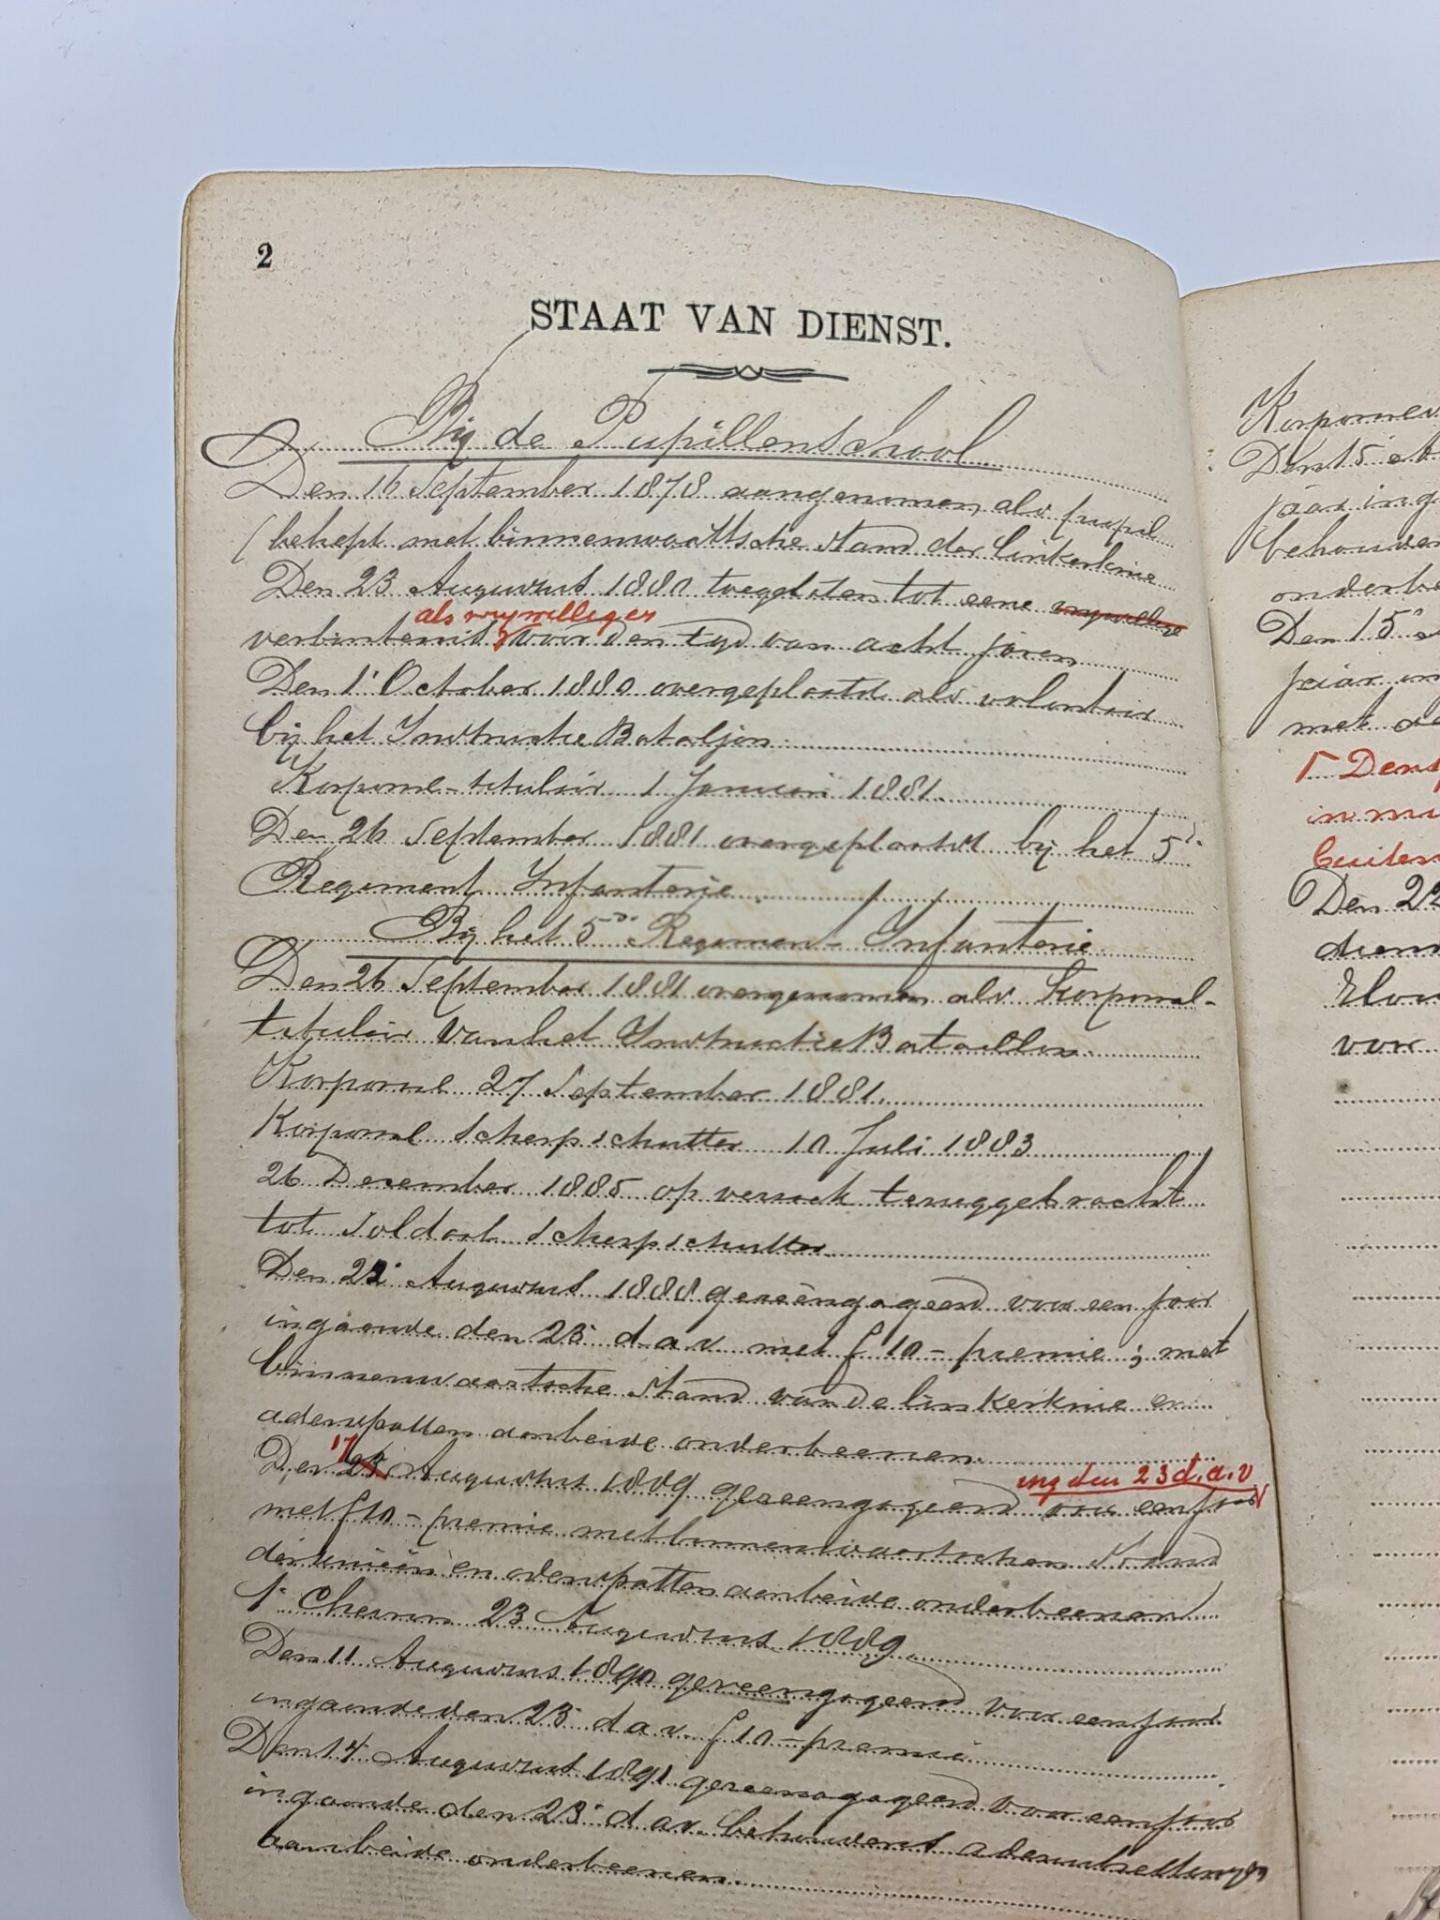 2
STAAT VAN DIENST.
Bij de Pupillenschool
Den 16 September 1878 aangenomen als pupil
(behept met binnenwaartsche stand der linkerknie
Den 23 Augustus 1880 toegelaten tot eene vrijwillige
als vrijwilliger
verbintenis voor den tijd van acht jaren
Den 1e October 1880 overgeplaatst als volontair
bij het Instructie Bataljon
Korporaal-titulair 1 Januari 1881.
Den 26 September 1881 overgeplaatst bij het 5e
Regiment Infanterie
Bij het 5de Regiment Infanterie
Den 26 September 1881 overgenomen als Korporaal-
titulair van het Instructie Bataillon
Korporaal 27 September 1881.
Korporaal scherpschutter 10 Juli 1883
26 December 1885 op verzoek teruggebracht
tot Soldaat scherpschutter
Den 22e Augustus 1888 gereëngageerd voor een jaar
ingaande den 23e d a v met f 10- premie ; met
binnenwaartsche stand van de linkerknie en
aderspatten aan beide onderbeenen.
Den 17 Augustus 1889 gereengageerd voor een jaar
ing den 23 d.a.v
met f 10- premie met binnenwaartschen stand
der knieën en aderspatten aan beide onderbeenen
1e Chevron 23 Augustus 1889
Den 11 Augustus 1890 gereengageerd voor een jaar
ingaande den 23e d a v. f 10- premie
Den 14 Augustus 1891 gereengageerd voor een jaar
ingaande den 23e d av. behoudens aderuitzettingen
aan beide onderbeenen.
Den 15e
jaar ing
onderbe
Den 15e
jaar in
met
in
Buiten
Den 22
dienst
voor